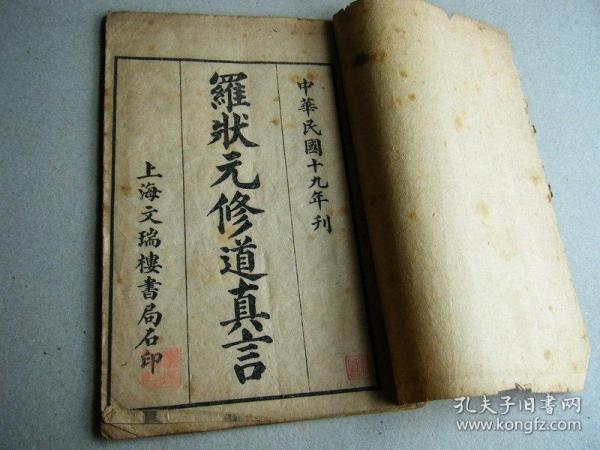 中華民國十九年刊
羅狀元修道真言
上海文瑞樓書局石印
孔夫子旧书网
www.kongfz.com